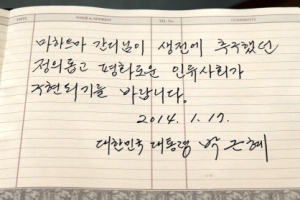 DATE NAME & ADDRESS TEL. No. COMMENTS
마하트마 간디님이 생전에 추구했던
정의롭고 평화로운 인류사회가
구현되기를 바랍니다.
2014. 1. 17.
대한민국 대통령 박근혜